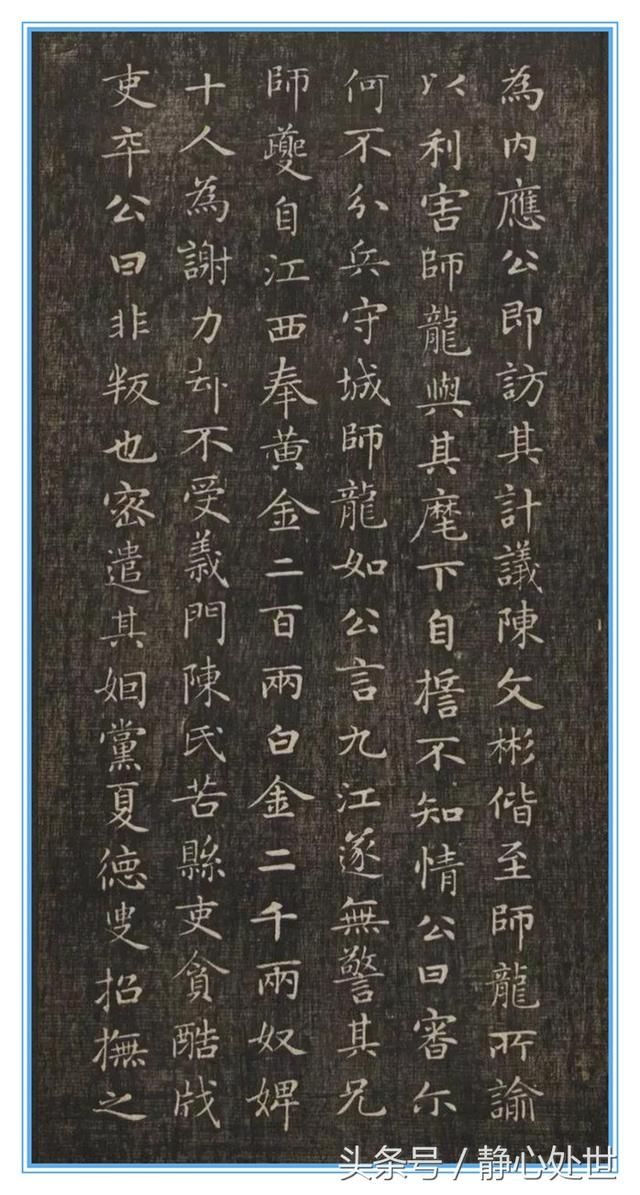 為内應公即訪其計議陳文彬偕至師龍所諭
以利害師龍與其麾下自擔不知情公曰審尓
何不分兵守城師龍如公言九江遂無警其兄
師夔自江西奉黄金二百兩白金二千兩奴婢
十人為謝力却不受義門陳氏苦縣吏貪酷戕
吏卒公曰非叛也密遣其姻黨夏德叟招撫之
头条号 / 静心处世